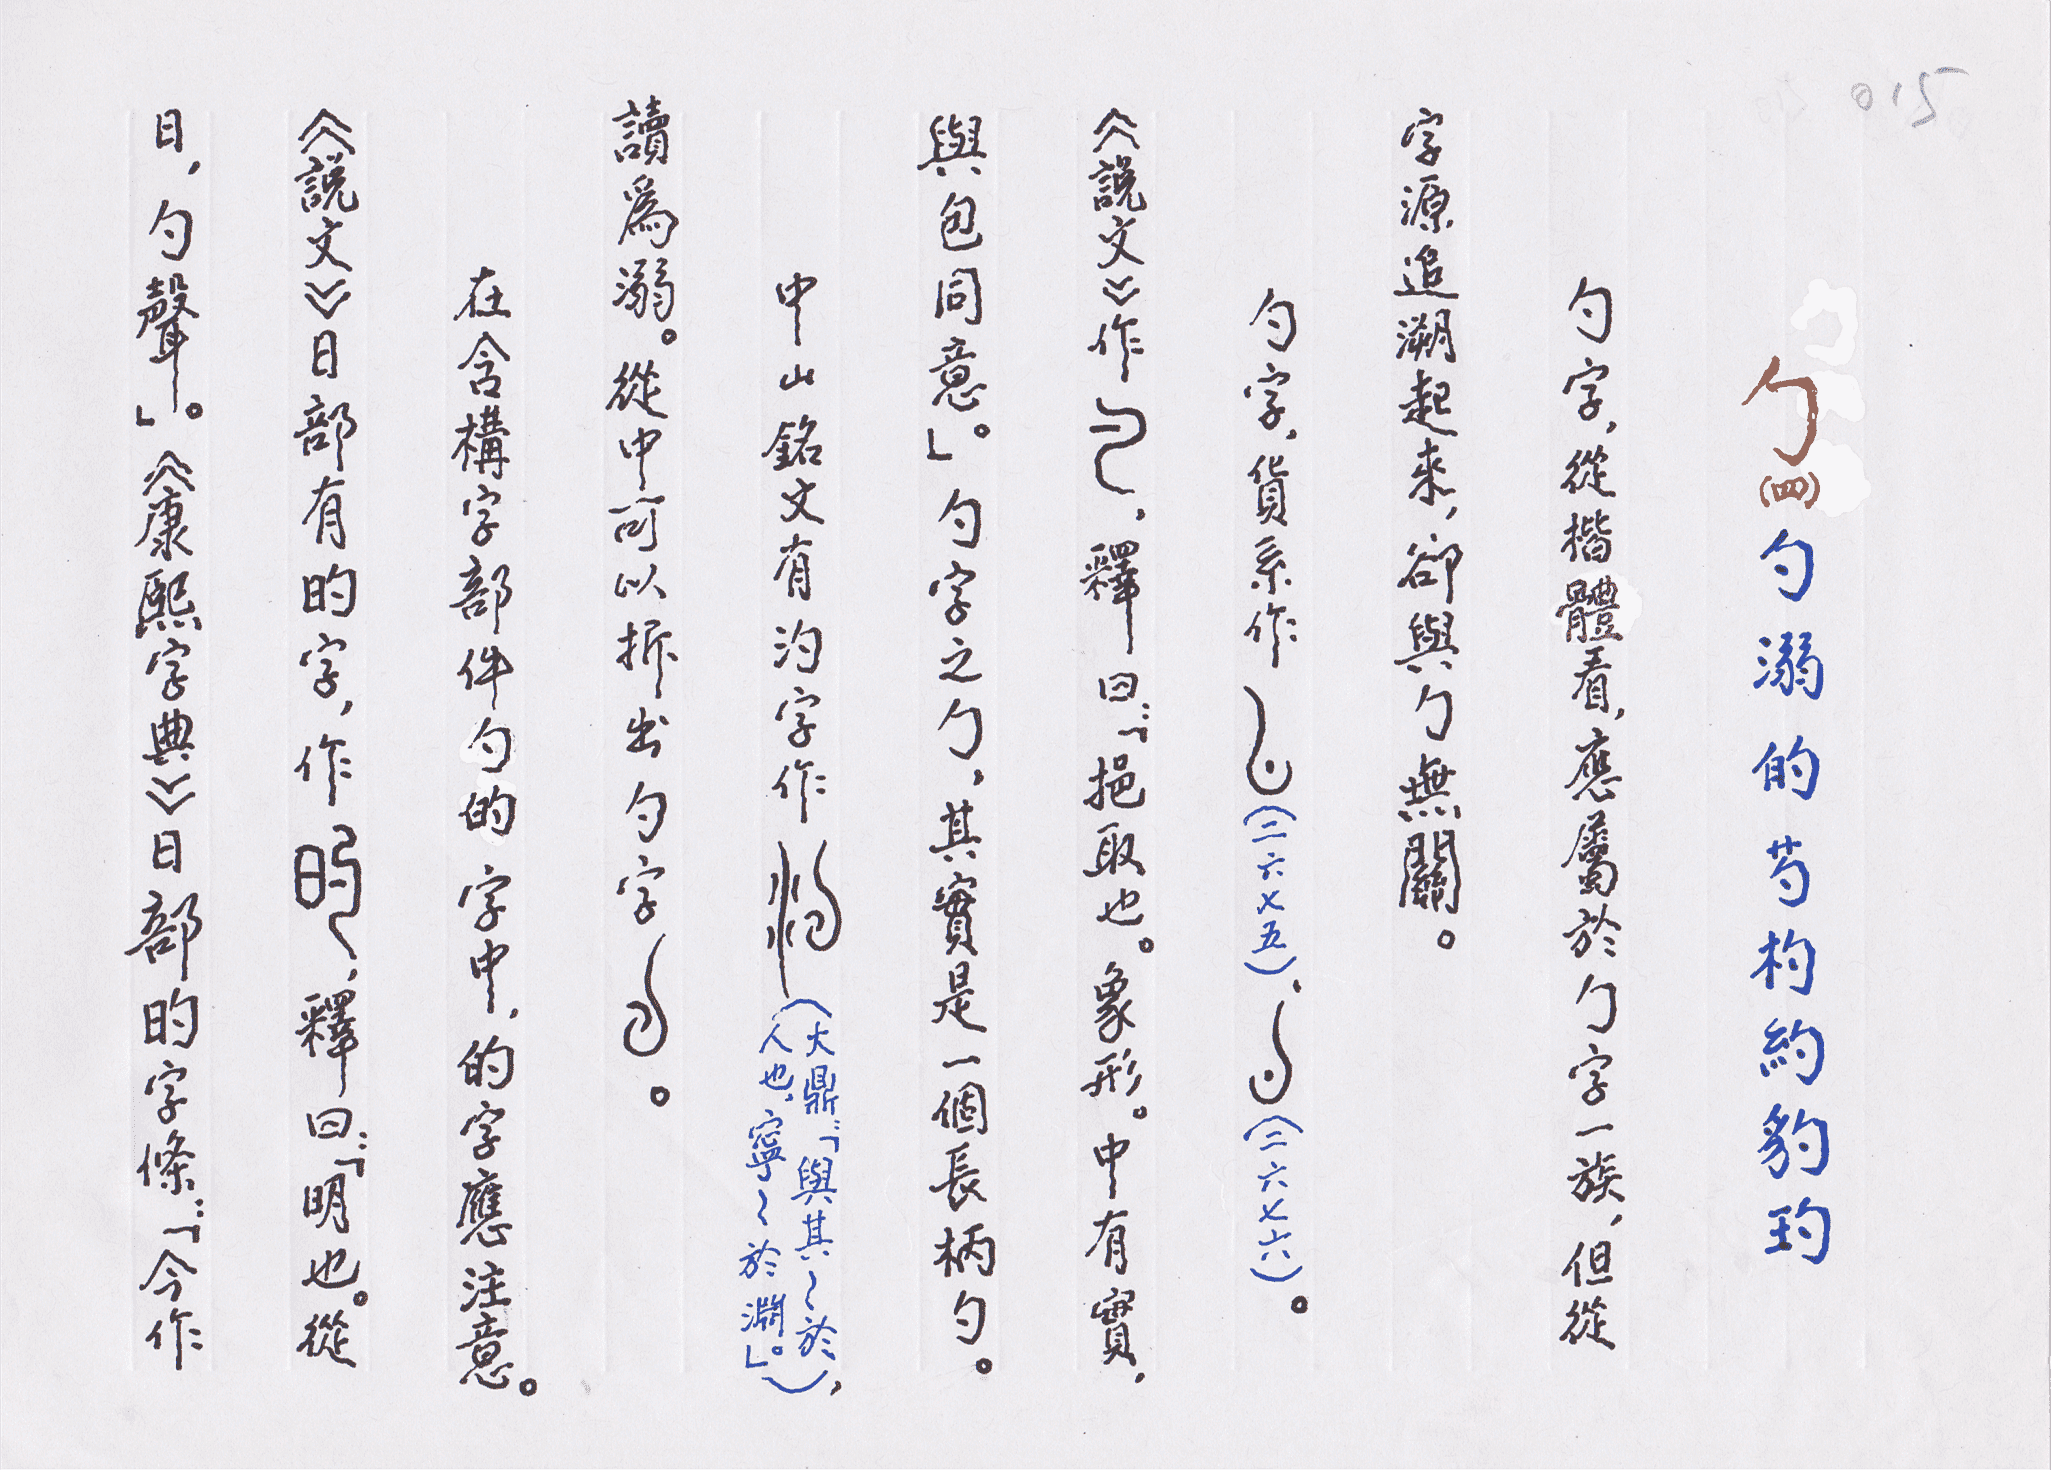 015
勹(四)勺溺的芍杓約豹玓
勺字,從楷體看,應屬於勹字一族,但從
字源追溯起來,卻與勹無關。
勺字,貨系作(二六七五)、(二六七六)。
《說文》作,釋曰:「挹取也。象形。中有實,
與包同意。」勺字之勹,其實是一個長柄勺。
中山銘文有汋字作(大鼎:「與其~於人也,寧~於淵。」),
讀爲溺。從中可以拆出勺字。
在含構字部件勺的字中,的字應注意。
《說文》日部有旳字,作,釋曰:「明也。從
日,勺聲」。《康熙字典》日部旳字條:「今作